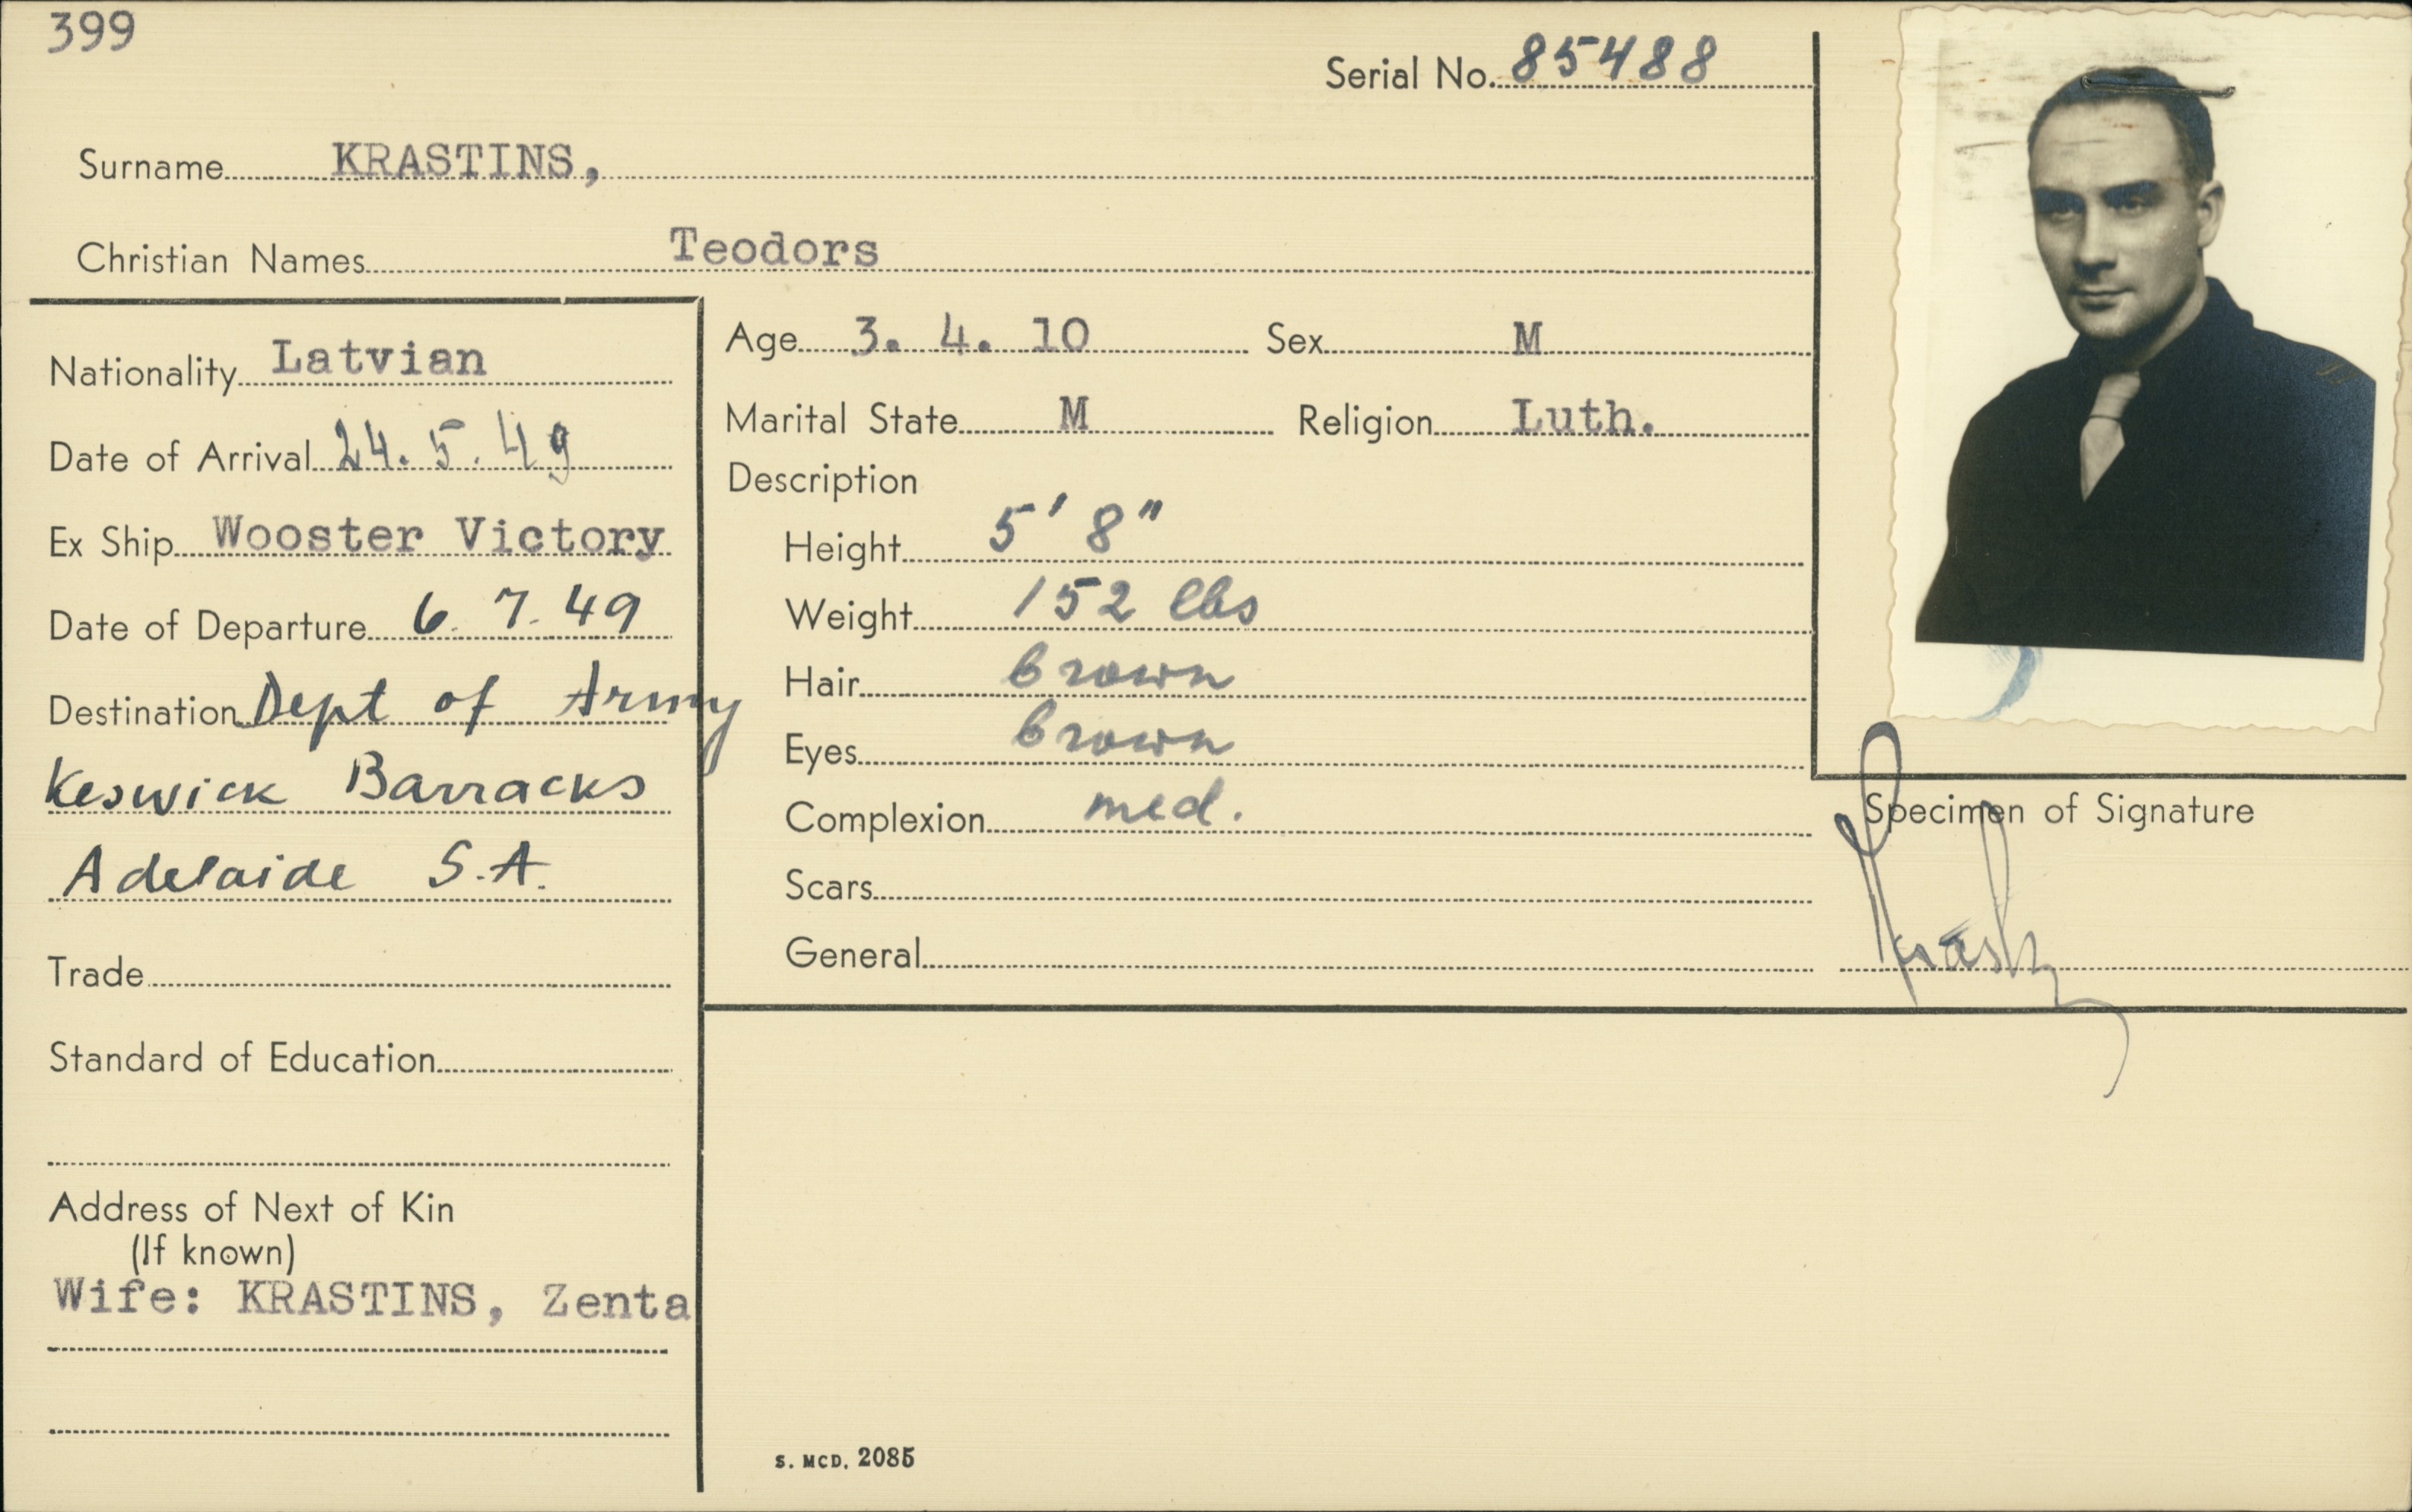 399
Serial No. 85488
Surname KRASTINS,
Christian Names Teodors
Nationality Latvian
Date of Arrival 24.5.49
Ex Ship Wooster Victory
Date of Departure 6.7.49
Destination Dept of Army
Keswick Barracks
Adelaide S.A.
Trade
Standard of Education
Address of Next of Kin
(If known)
Wife: KRASTINS, Zenta
Age 3. 4. 10 Sex M
Marital State M Religion Luth.
Description
Height 5' 8"
Weight 152 lbs
Hair brown
Eyes brown
Complexion med.
Scars
General
Specimen of Signature
S. MCD. 2085